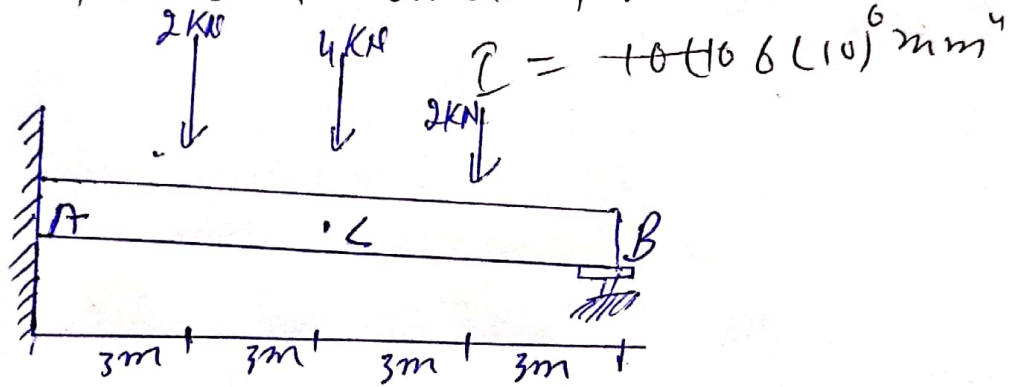 2KN 4KN I = 6(10)⁶ mm⁴
2KN
A .C B
3m 3m 3m 3m